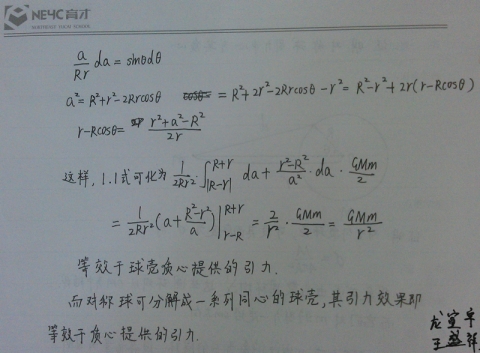 NEYC育才
NORTHEAST YUCAI SCHOOL
a/(Rr) da = sinθdθ
a² = R²+r²-2Rrcosθ = R²+2r²-2Rrcosθ-r² = R²-r²+2r(r-Rcosθ)
r-Rcosθ = (r²+a²-R²)/(2r)
这样, 1.1式可化为 1/(2Rr²) · ∫_{|R-r|}^{R+r} da + (r²-R²)/a² · da · GMm/2
= 1/(2Rr²) (a + (R²-r²)/a) |_{r-R}^{R+r} = 2/r² · GMm/2 = GMm/r²
等效于球壳质心提供的引力.
而对称球可分解成一系列同心的球壳, 其引力效果即
等效于质心提供的引力.
龙宝卓
王盛祥